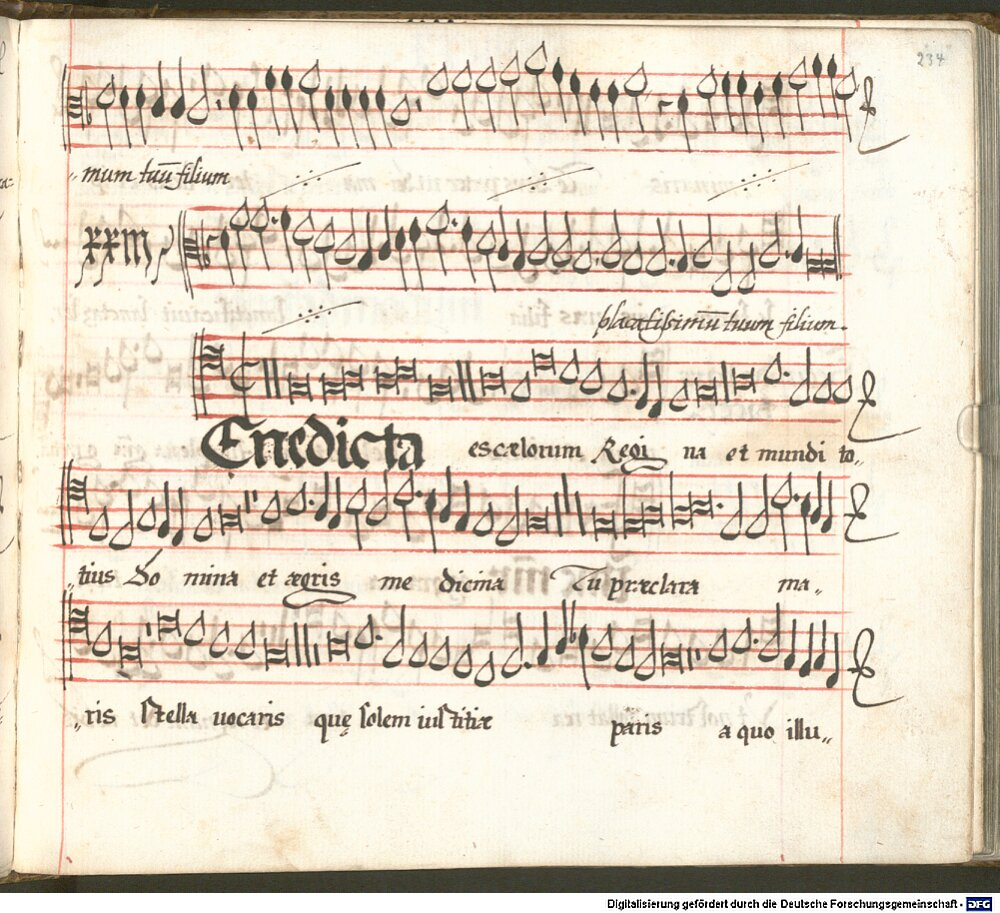 234
mum tuũ filium
XXIII
placatissimũ tuum filium.
Enedicta es cælorum Regi na et mundi to„
„tius Do mina et ægris me dicina Tu præclara ma„
„ris stella uocaris quę solem iustitiæ paris a quo illu„
Digitalisierung gefördert durch die Deutsche Forschungsgemeinschaft - DFG